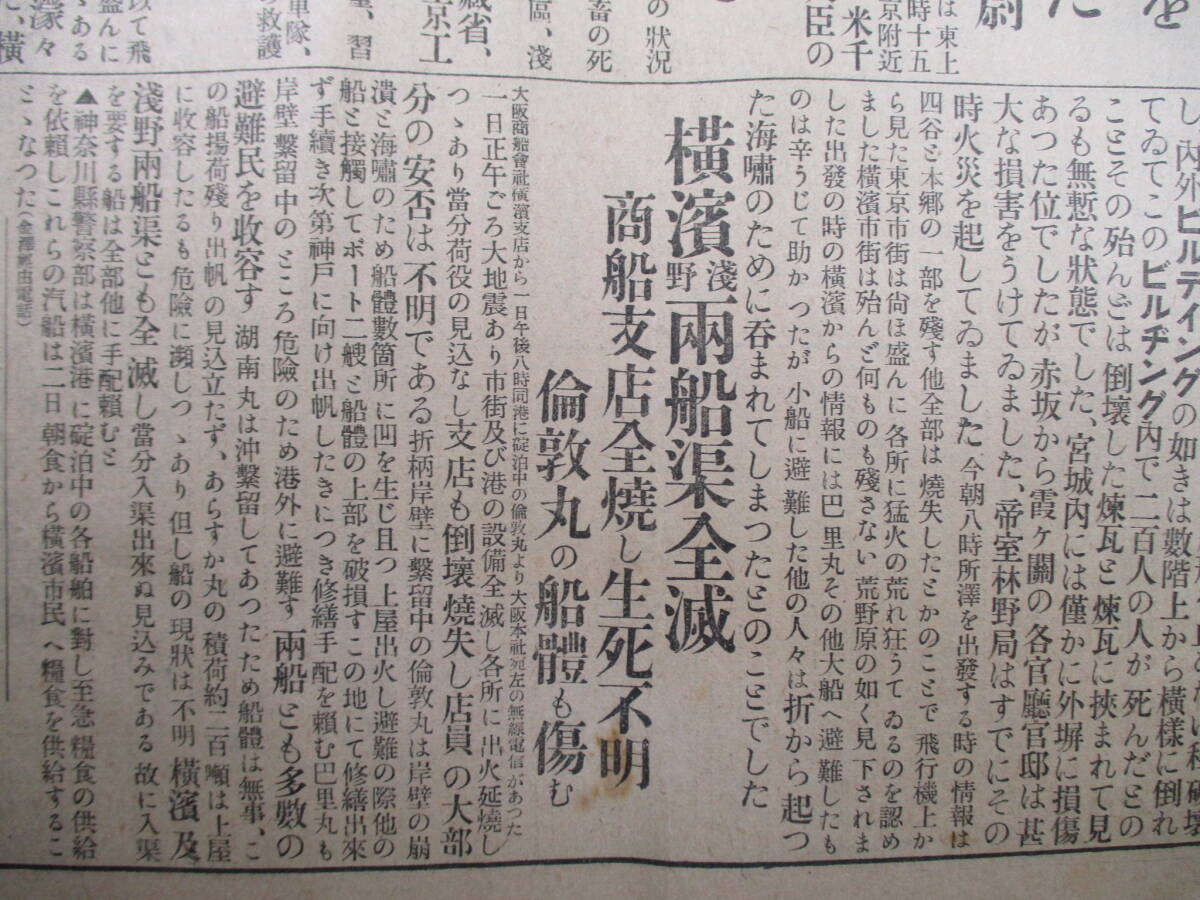 を
た
尉
は東上
時十五
京附近
米千
大臣の
の狀況
畜の死
區、淺
藏省、
京工
習
車隊、
の救護
以て飛
盛んに
ゝある
濛々
橫
し内外ビルディングの如きは數階上から橫樣に倒れ
てゐてこのビルヂング内で二百人の人が死んだとの
ことその殆んどは倒壞した煉瓦と煉瓦に挾まれて見
るも無慙な狀態でした、宮城内には僅かに外塀に損傷
あつた位でしたが赤坂から霞ヶ關の各官廳官邸は甚
大な損害をうけてゐました、帝室林野局はすでにその
時火災を起してゐました今朝八時所澤を出發する時の情報は
四谷と本郷の一部を殘す他全部は燒失したとかのことで飛行機上か
ら見た東京市街は尙ほ盛んに各所に猛火の荒れ狂うてゐるのを認め
ました橫濱市街は殆んど何ものも殘さない荒野原の如く見下されま
した出發の時の橫濱からの情報には巴里丸その他大船へ避難したも
のは辛うじて助かつたが小船に避難した他の人々は折から起つ
た海嘯のために呑まれてしまつたとのことでした
橫濱淺野兩船渠全滅
商船支店全燒し生死不明
倫敦丸の船體も傷む
大阪商船會社橫濱支店から一日午後八時同港に碇泊中の倫敦丸より大阪本社宛左の無線電信があつた
一日正午ごろ大地震あり市街及び港の設備全滅し各所に出火延燒し
つゝあり當分荷役の見込なし支店も倒壞燒失し店員の大部
分の安否は不明である折柄岸壁に繫留中の倫敦丸は岸壁の崩
潰と海嘯のため船體數箇所に凹を生じ且つ上屋出火し避難の際他の
船と接觸してボート二艘と船體の上部を破損すこの地にて修繕出來
ず手續き次第神戸に向け出帆したきにつき修繕手配を賴む巴里丸も
岸壁繫留中のところ危險のため港外に避難す兩船とも多數の
避難民を收容す湖南丸は沖繫留してあつたため船體は無事、こ
の船揚荷殘り出帆の見込立たず、あらすか丸の積荷約二百噸は上屋
に收容したるも危險に瀕しつゝあり但し船の現狀は不明橫濱及
淺野兩船渠とも全滅し當分入渠出來ぬ見込みである故に入渠
を要する船は全部他に手配賴むと
▲神奈川縣警察部は橫濱港に碇泊中の各船舶に對し至急糧食の供給
を依賴しこれらの汽船は二日朝食から橫濱市民へ糧食を供給するこ
とゝなつた(金澤經由電話)